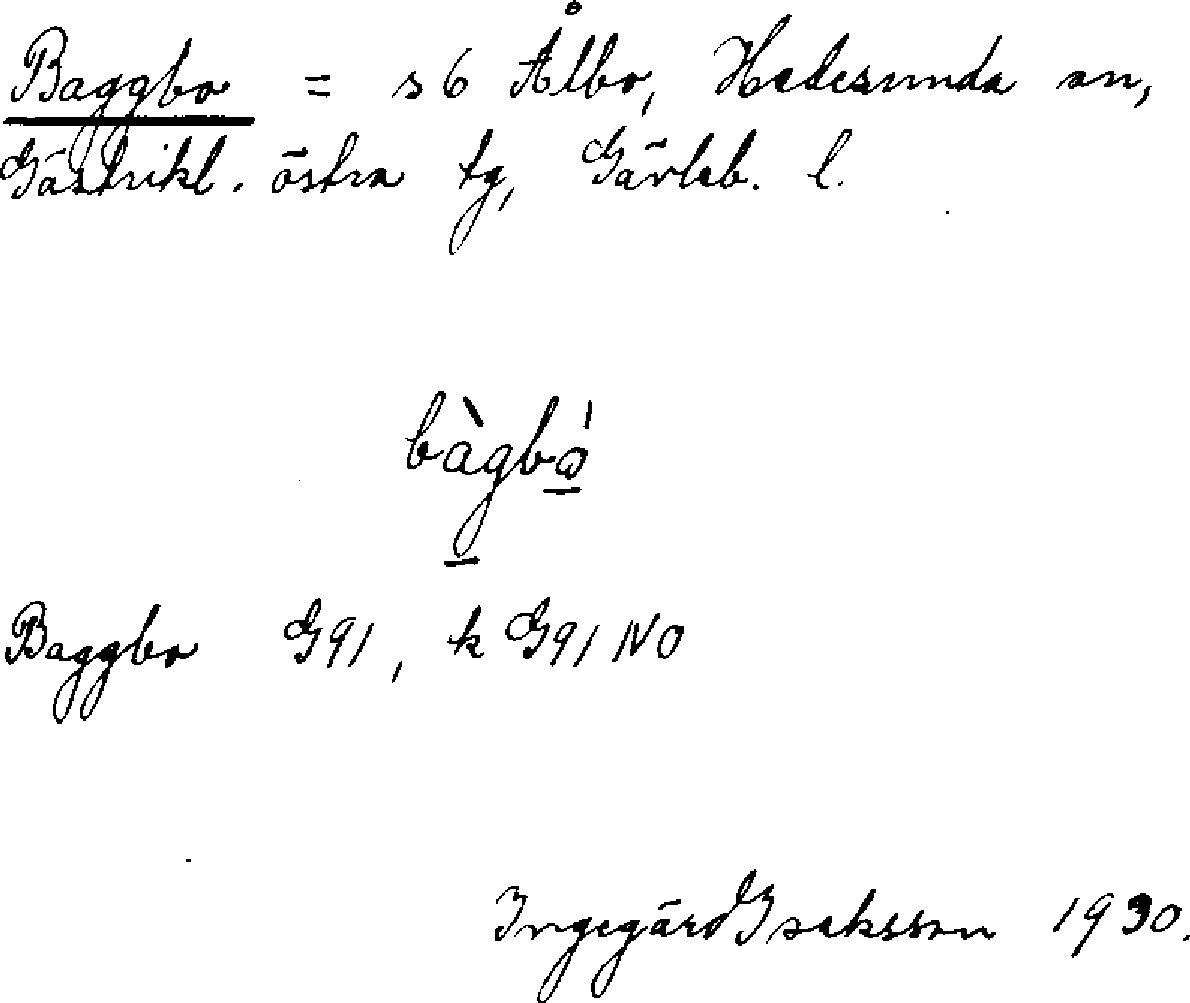 Baggbo = s 6 Ålbo, Hedesunda sn,
Gästrikl. östra tg, Gävleb. l.
bàgbó
Baggbo G91, k G91 NO
Ingegärd Isaksson 1930.